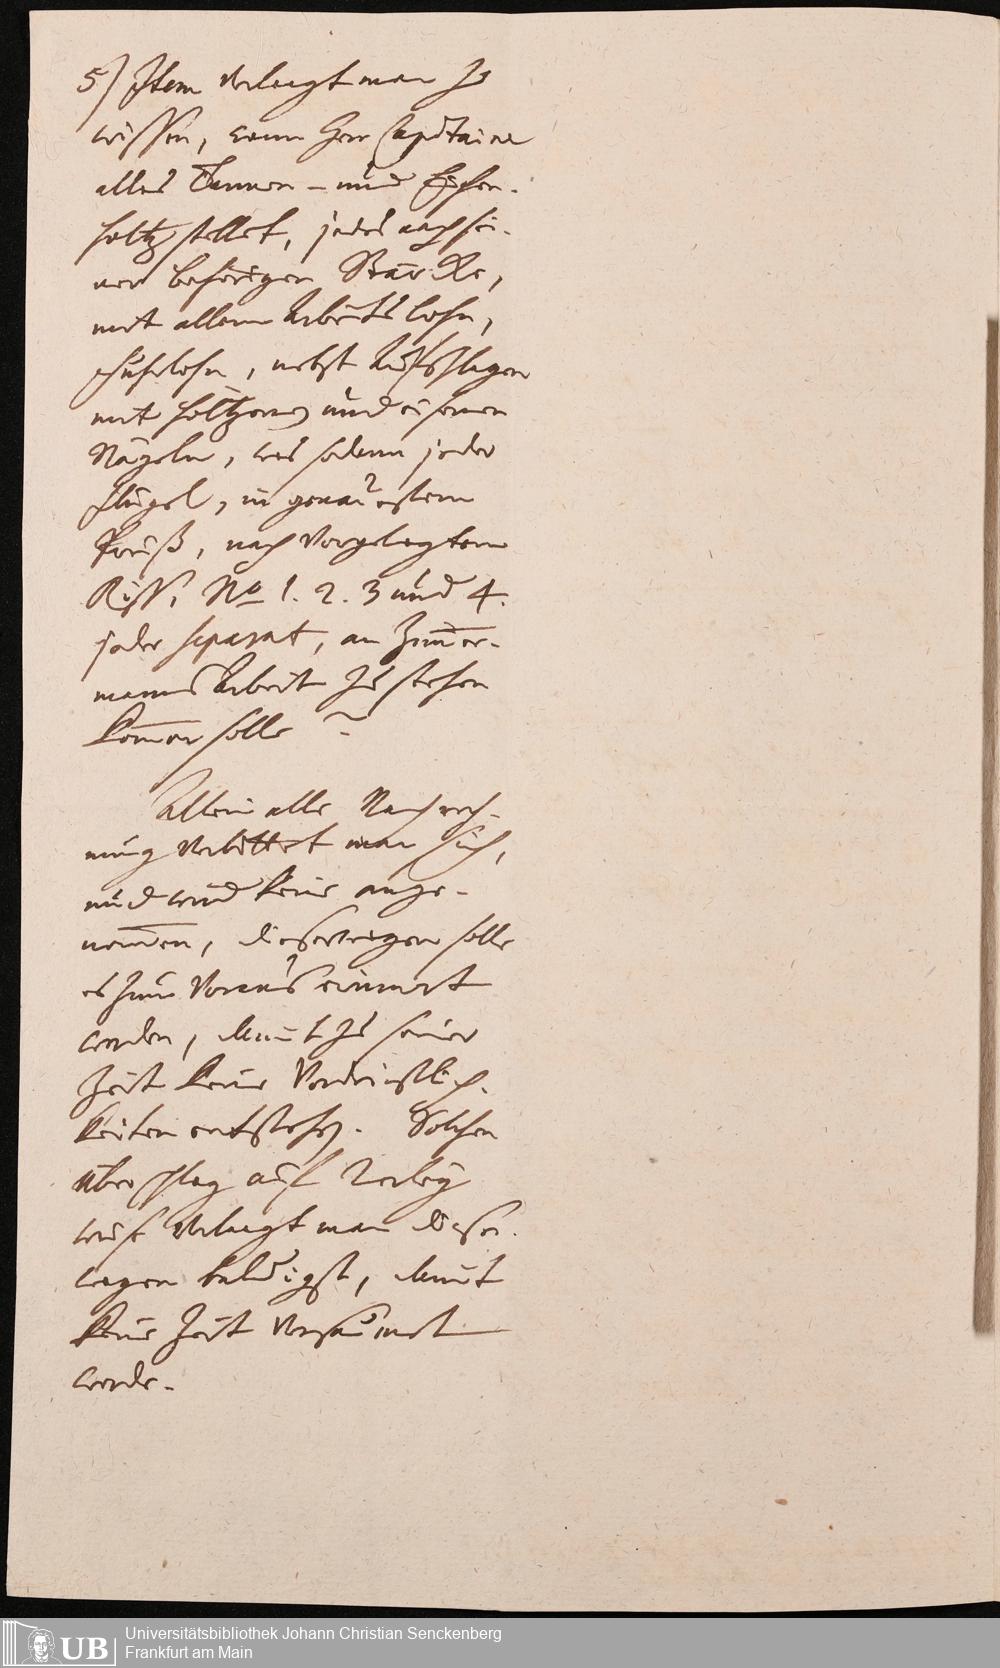 5) Item verlangt man zu
wissen, wann Herr Capitaine
alles Tannen- und Eichen-
holtz stellet, jedes nach sei-
ner behörigen Stärcke,
mit allem Arbeitslohn,
Fuhrlohn, nebst Aufschlagen
mit holtzernen und eisernen
Nägeln, was sodann jeder
Flügel, in genauestem
Preiß, nach vorgelegtem
Riss, No 1. 2. 3 und 4.
jeder separat, an Zim̅er-
manns Arbeit zu stehen
kom̅en solle?
Allein alle Nachrech-
nung verbittet man sich,
und wird keine ange-
nom̅en, dieserwegen solle
es zum Voraus erinnert
werden, damit zu seiner
Zeit keine Verdrießlich-
keiten entstehen. Solchen
überschlag auf
verlangt man dieser-
wegen baldigst, damit
keine Zeit versäumet
werde.
Universitätsbibliothek Johann Christian Senckenberg
UB Frankfurt am Main